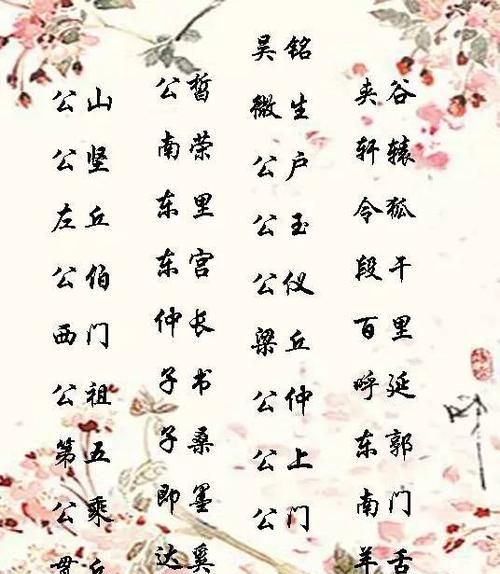 公山
公坚
左丘
公伯
西门
公祖
第五
公乘
贯丘
公皙
南荣
东里
东宫
仲长
子书
子桑
即墨
达奚
吴铭
微生
公户
公玉
公仪
梁丘
公仲
公上
公门
夹谷
轩辕
令狐
段干
百里
呼延
东郭
南门
羊舌